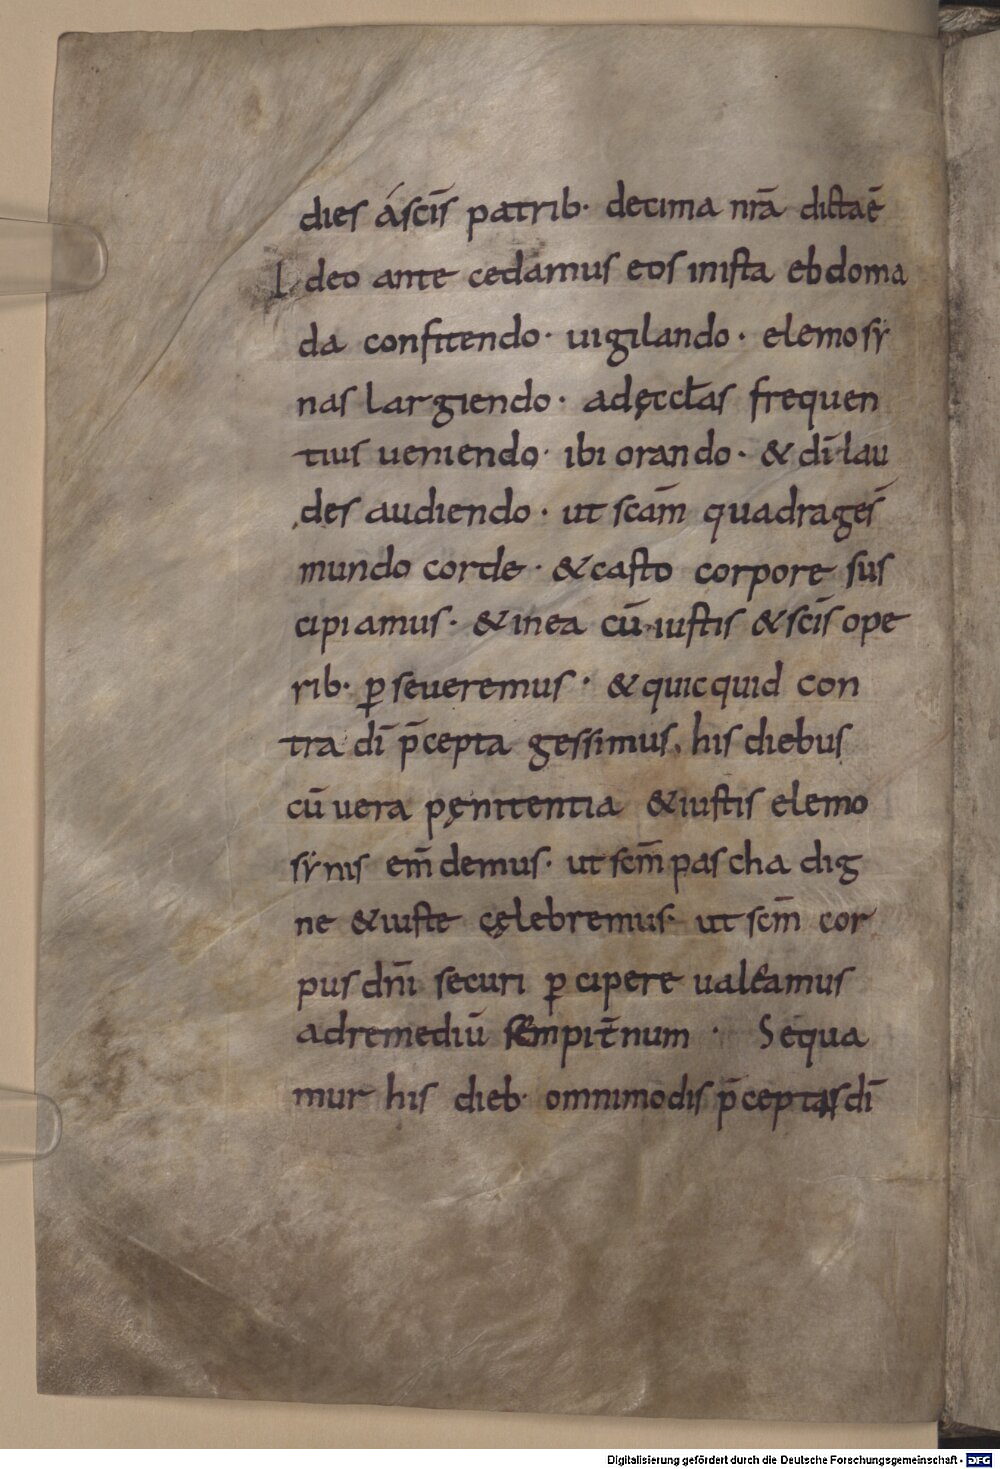 dies ásc̄is patrib· decima nr̄a dictaē
Ideo ante cedamus eos inista ebdoma
da confitendo· uigilando· elemosẏ
nas largiendo· adęccłas frequen
tius ueniendo· ibi orando· & dī lau
des audiendo· ut scām quadragēs
mundo corde· & casto corpore sus
cipiamus· & inea cū iustis & sc̄is ope
rib· p̲seueremus· & quicquid con
tra dī p̄cepta gessimus, his diebus
cū uera pęnitentia & iustis elemo
sẏnis em̄demus· ut scm̄ pascha dig
ne & iuste cęlebremus· ut scm̄ cor
pus dn̄i securi p̲cipere ualeamus
adremediū sempit̄num · Sequa
mur his dieb· omnimodis p̄ceptas dī
Digitalisierung gefördert durch die Deutsche Forschungsgemeinschaft - DFG